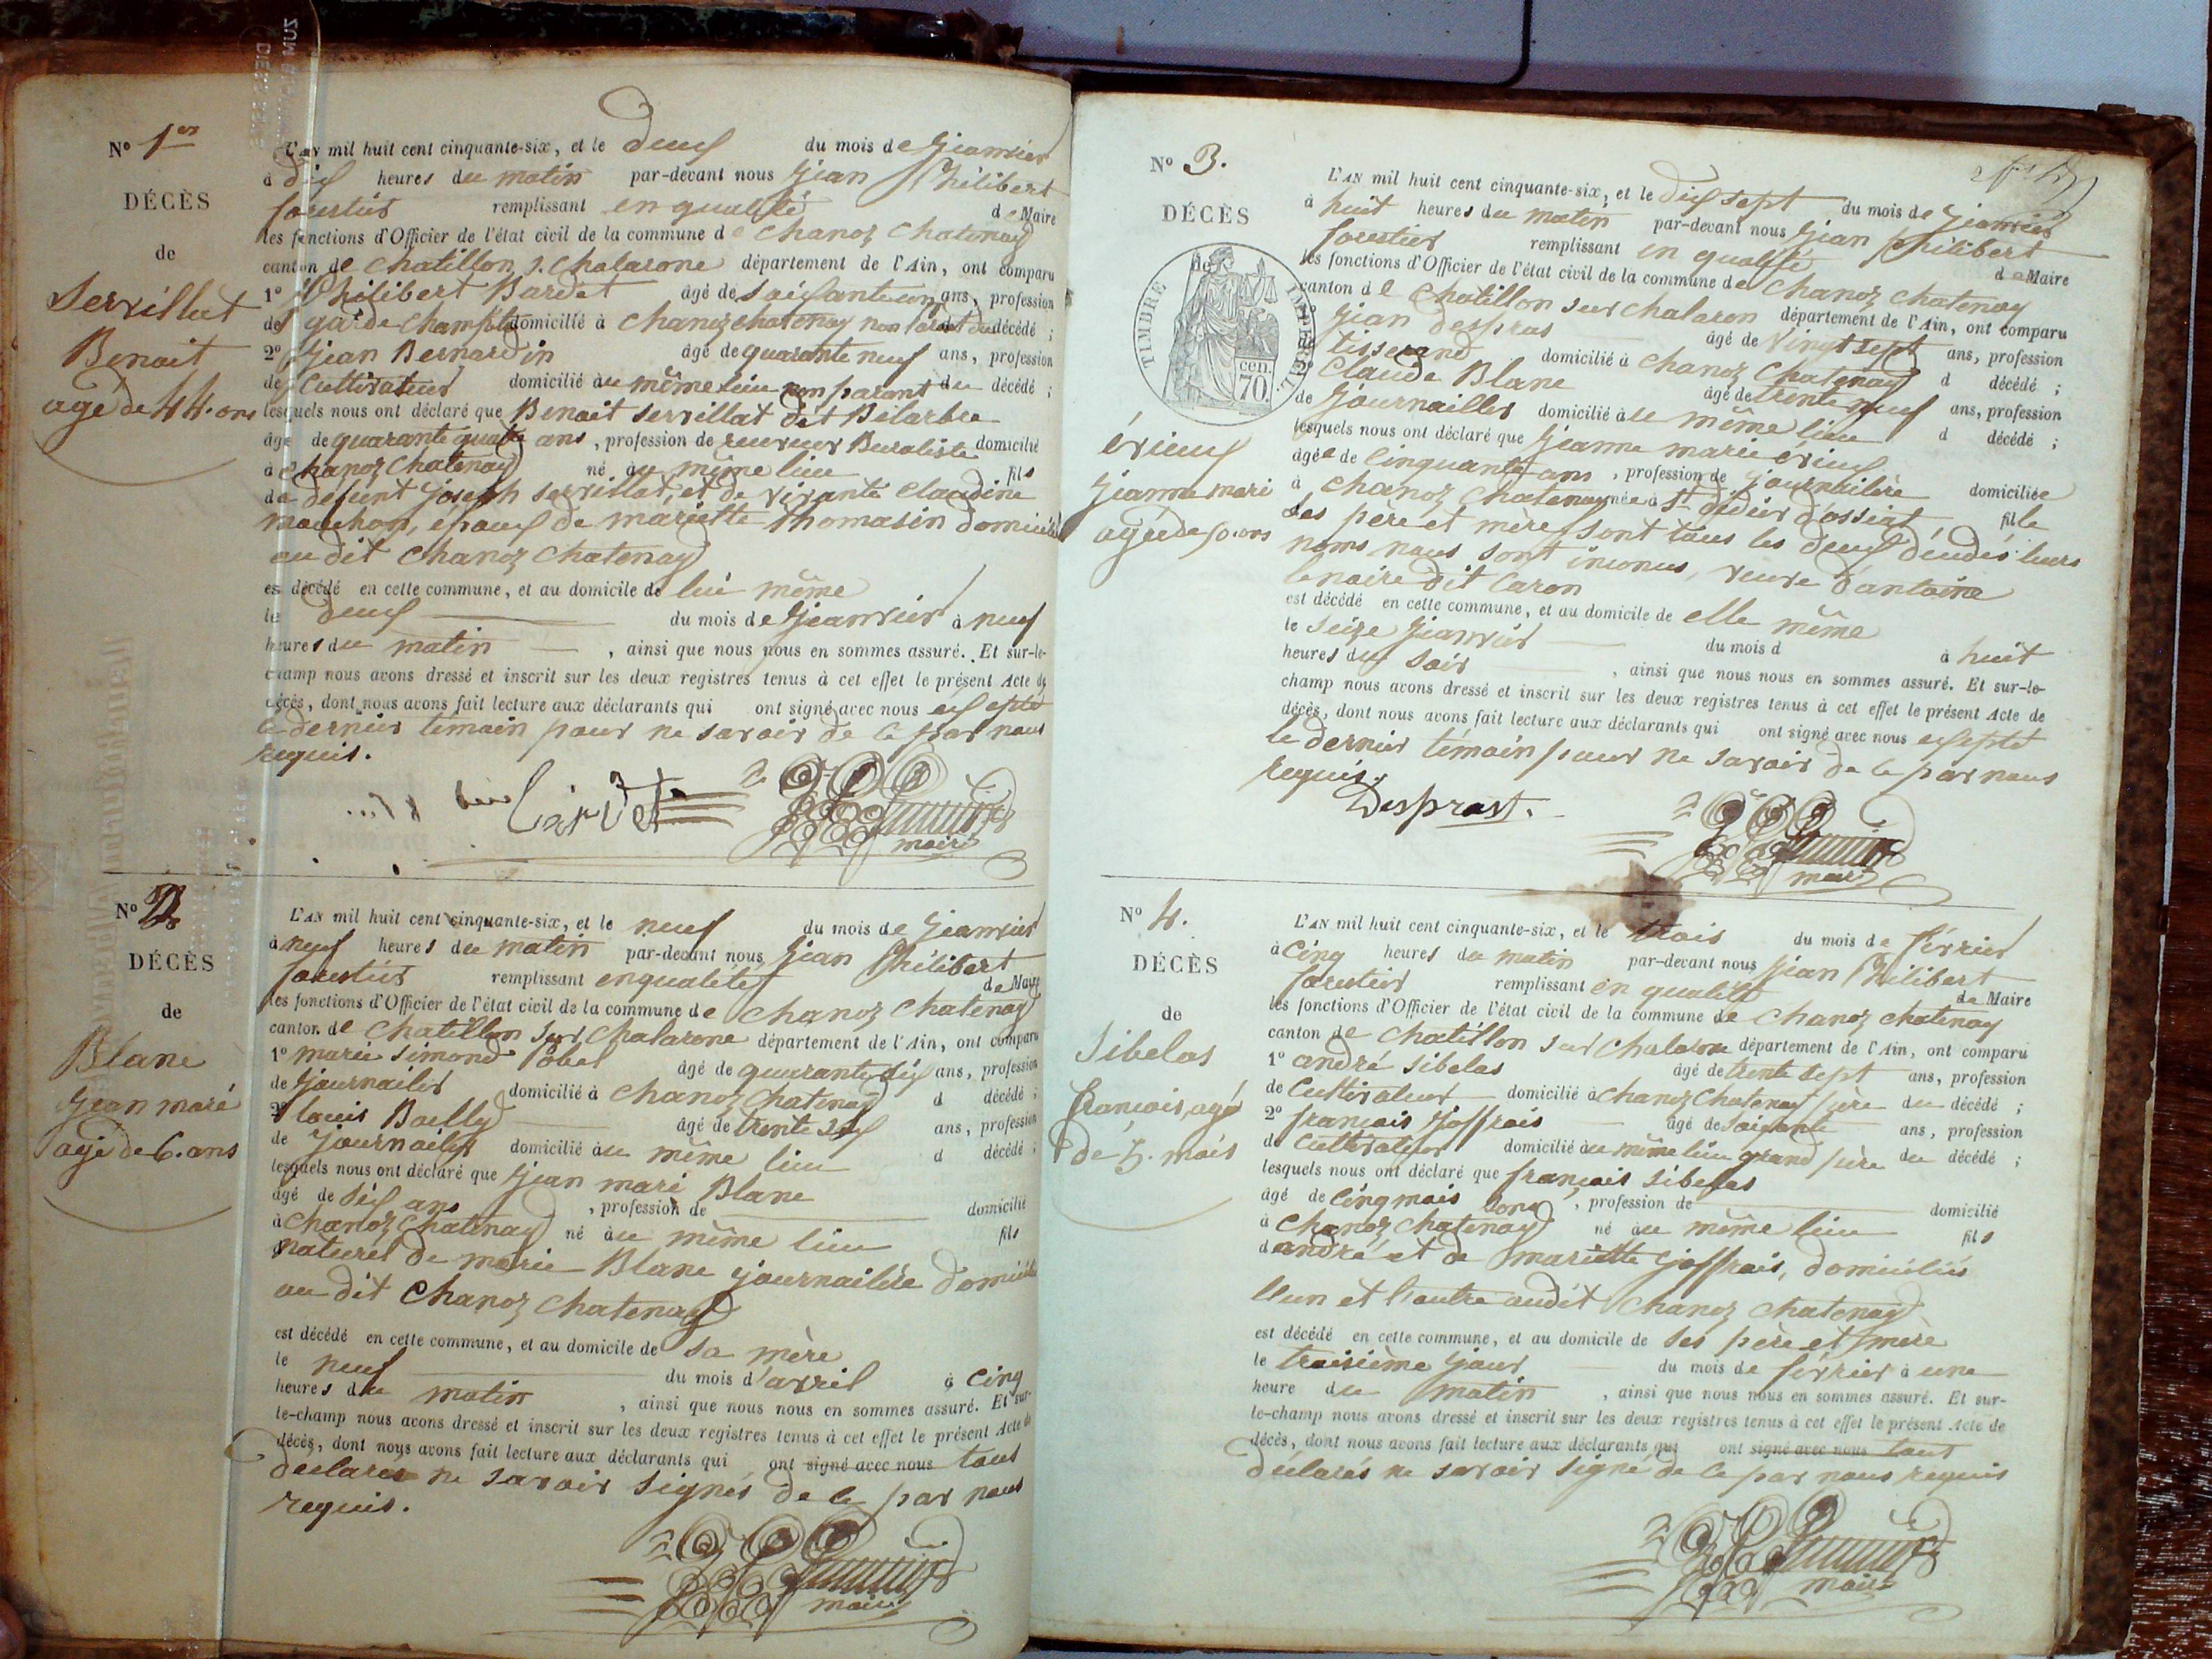 N° 1er
DÉCÈS
de
Servillat
Benoit
agé de 44. ans
L'AN mil huit cent cinquante-six, et le deux du mois de Jeanvier
à dix heures du matin par-devant nous Jean Philibert
forestier remplissant en qualité de Maire
les fonctions d'Officier de l'état civil de la commune de Chanoz Chatenay
canton de Chatillon s. Chalarone département de l'Ain, ont comparu
1° Philibert Bardet âgé de soixante un ans, profession
de garde Champêtre domicilié à Chanoz chatenay non parent du décédé ;
2° Jean Bernardin âgé de quarante neuf ans, profession
de Cultivateur domicilié au même lieu non parant du décédé ;
lesquels nous ont déclaré que Benoit Servillat dit Belarbre
âgé de quarante quatre ans, profession de receveur Buraliste domicilié
à Chanoz Chatenay né au même lieu fils
de defunt Joseph servillat, et de vivante Claudine
mouchon, epoux de mariette Thomasin domicilié
au dit Chanoz Chatenay
est décédé en cette commune, et au domicile de lui même
le deux du mois de Jeanvier à neuf
heures du matin , ainsi que nous nous en sommes assuré. Et sur-le-
champ nous avons dressé et inscrit sur les deux registres tenus à cet effet le présent Acte de
décès, dont nous avons fait lecture aux déclarants qui ont signé avec nous exepté
le dernier témoin pour ne savoir de ce par nous
requis.
maire
N° 2
DÉCÈS
de
Blanc
Jean marie
agé de 6. ans
L'AN mil huit cent cinquante-six, et le neuf du mois de Jeanvier
à neuf heures du matin par-devant nous Jean Philibert
forestier remplissant en qualité de Maire
les fonctions d'Officier de l'état civil de la commune de Chanoz Chatenay
canton de Chatillon sur Chalarone département de l'Ain, ont comparu
1° marie Simond Pobel âgé de quarante dix ans, profession
de Journailier domicilié à Chanoz Chatenay d décédé ;
2° Louis Bailly âgé de trente six ans, profession
de Journailier domicilié au même lieu d décédé ;
lesquels nous ont déclaré que Jean marie Blanc
âgé de six ans , profession de domicilié
à Chanoz Chatenay né au même lieu fils
naturel de marie Blanc journailière domicilié
au dit Chanoz Chatenay
est décédé en cette commune, et au domicile de sa mère
le neuf du mois d'avril à cinq
heures du matin , ainsi que nous nous en sommes assuré. Et sur-
le-champ nous avons dressé et inscrit sur les deux registres tenus à cet effet le présent Acte de
décès, dont nous avons fait lecture aux déclarants qui ont signé avec nous tous
declarés ne savoir signés de ce par nous
requis.
maire
N° 3.
DÉCÈS
de
TIMBRE IMPERIAL
cen. 70.
érieux
Jeanne marie
agée de 50. ans
L'AN mil huit cent cinquante-six, et le dix sept du mois de Jeanvier
à huit heures du matin par-devant nous Jean Philibert
forestier remplissant en qualité de Maire
les fonctions d'Officier de l'état civil de la commune de Chanoz Chatenay
canton de Chatillon sur Chalaron département de l'Ain, ont comparu
Jean despras âgé de vingt sept ans, profession
tisserand domicilié à Chanoz Chatenay d décédé ;
Claude Blanc âgé de trente neuf ans, profession
de Journailler domicilié au même lieu d décédé ;
lesquels nous ont déclaré que Jeanne marie érieux
âgée de cinquante ans , profession de journailère domiciliée
à Chanoz Chatenay née à St didier d'ossiat, fille
des père et mère sont tous les deux décudés leurs
noms nous sont inconus, veuve d'antoine
lenoire dit Caron
est décédé en cette commune, et au domicile de elle même
le seize Jeanvier du mois d à huit
heures du soir , ainsi que nous nous en sommes assuré. Et sur-le-
champ nous avons dressé et inscrit sur les deux registres tenus à cet effet le présent Acte de
décès, dont nous avons fait lecture aux déclarants qui ont signé avec nous exepté
le dernier témoin pour ne savoir de ce par nous
requis.
Desprast.
maire
N° 4.
DÉCÈS
de
Sibelas
francois, agé
de 5. mois
L'AN mil huit cent cinquante-six, et le trois du mois de février
à cinq heures du matin par-devant nous Jean Philibert
forestier remplissant en qualité de Maire
les fonctions d'Officier de l'état civil de la commune de Chanoz Chatenay
canton de Chatillon sur Chalarone département de l'Ain, ont comparu
1° andré Sibelas âgé de trente sept ans, profession
de Cultivateur domicilié à Chanoz Chatenay père du décédé ;
2° francais Joffrais âgé de soixante ans, profession
de Cultivateur domicilié au même lieu grand père du décédé ;
lesquels nous ont déclaré que francais Sibelas
âgé de cinq mois , profession de domicilié
à Chanoz Chatenay né au même lieu fils
d'andré et de mariette Joffrais, domiciliés
l'un et l'autre audit Chanoz Chatenay
est décédé en cette commune, et au domicile de ses père et mère
le troisième Jour du mois de février à une
heure du matin , ainsi que nous nous en sommes assuré. Et sur-
le-champ nous avons dressé et inscrit sur les deux registres tenus à cet effet le présent Acte de
décès, dont nous avons fait lecture aux déclarants qui ont signé avec nous tout
déclarés ne savoir signé de ce par nous requis
maire